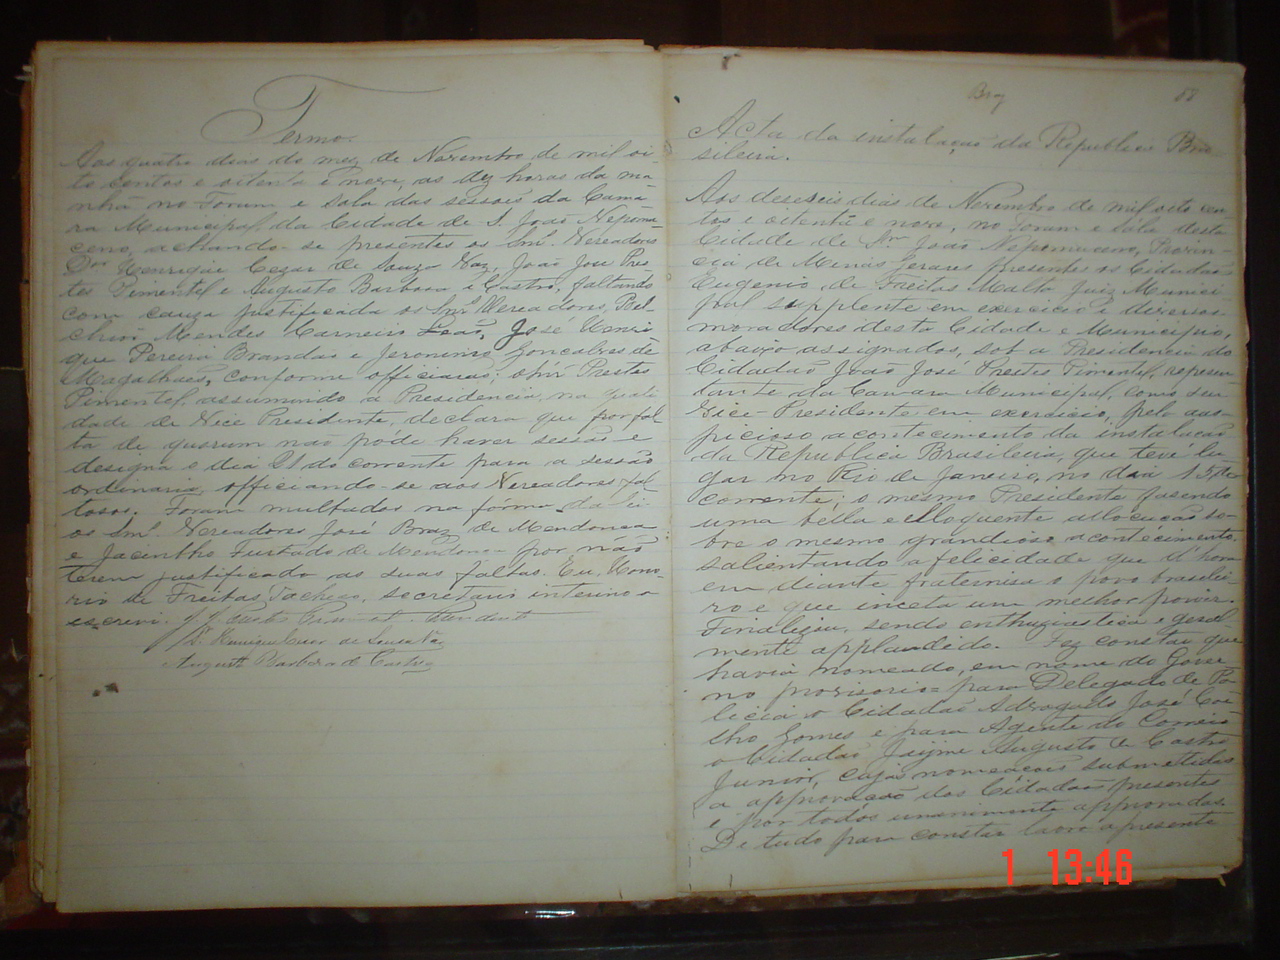 Termo
Aos quatro dias do mez de Novembro de mil oi-
to centos e oitenta e nove, as dez horas da ma-
nhã no Forum e sala das sessoes da Cama-
ra Municipal da Cidade de S. João Nepomu-
ceno, achando-se presentes os Snrs. Vereadores
Dor Henrique Cezar de Souza Vaz, João José Pres-
tes Pimentel e Augusto Barbosa e Castro, faltando
com cauza justificada os Snrs Vereadores,
Mendes Carneiro Leão, José Henri-
que Pereira Brandão e Jeronimo Gonçalves de
Magalhaes, conforme officiarão; o Snr. Prestes
Pimentel, assumindo a Presidencia, na quali-
dade de Vice Presidente, declara que por fal-
ta de quorum não póde haver sessão e
designa o dia 21 do corrente para a sessão
ordinaria, officiando-se aos Vereadores fal-
tosos. Foram multados na fórma da lei
os Snrs. Vereadores José Braz de Mendonça
e Jacintho Furtado de Mendonça por não
terem justificado as suas faltas. Eu, Hono-
rio de Freitas Pacheco, secretario interino o
escrevi.
Dr. Henrique Cezar de Souza Vaz
Augusto Barbosa de Castro
Braz
58
Acta da instalação da Republica Bra-
sileira.
Aos deseseis dias de Novembro de mil oito cen-
tos e oitenta e nove, no Forum e sala desta
Cidade de São João Nepomuceno, Provin-
cia de Minas Geraes presentes os Cidadãos
Eugenio de Freitas Malta Juiz Munici-
pal supplente em exercicio e diversos
moradores desta Cidade e Municipio,
abaixo assignados, sob a Presidencia do
Cidadão João José Prestes Pimentel, represen-
tante da Camara Municipal, como seu
Vice-Presidente em exercicio, pelo aus-
picioso acontecimento da instalação
da Republica Brasileira, que teve lu-
gar no Rio de Janeiro, no dia 15 do
corrente; o mesmo Presidente fasendo
uma bella e elloquente allocução so-
bre o mesmo grandioso acontecimento,
salientando a felicidade que d'hora
em diante fraternisa o povo brasilei-
ro e que inceta um melhor porvir.
Finalisou, sendo enthuziastica e geral
mente applaudido. Fez constar que
havia nomeado, em nome do Gover-
no provisorio = para Delegado de Po-
licia o Cidadão Advogado José Coe-
lho Gomes e para Agente do Correio
o Cidadão Jayme Augusto de Castro
Junior, cujas nomeacões submettidas
a approvacão dos Cidadãos presentes
e por todos unanimente approvadas.
De tudo para constar lavro a presente
1 13:46